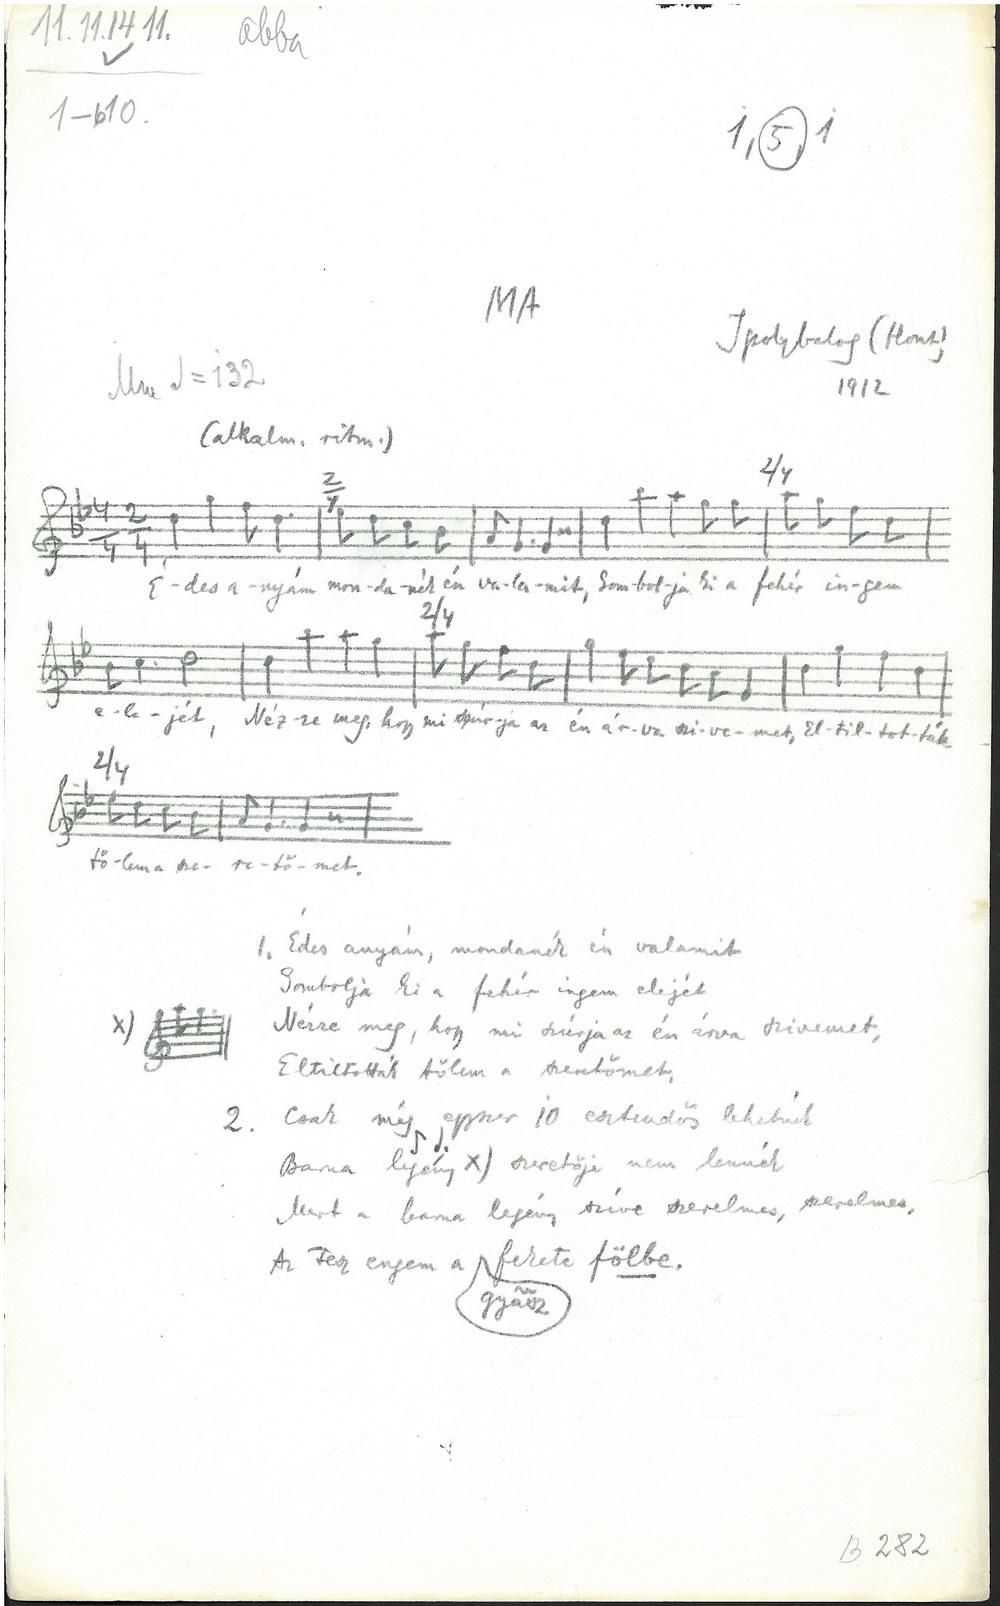 11.11.14 11. abba
1–b10.
1, 5, 1
MA
Ipolybalog (Hont)
1912
♩=132
(alkalm. ritm.)
2/4 2/4
4/4 2/4
É-des a-nyám mon-da-nék én va-la-mit, Gom-bol-ja ki a fehér in-gem
2/4
e-le-jét, Néz-ze meg, hogy mi szúr-ja az én ár-va szi-ve-met, El-til-tot-ták
2/4
tő-lem a sze-re-tő-met.
1. Édes anyám, mondanék én valamit
Gombolja ki a fehér ingem elejét
x) Nézze meg, hogy mi szúrja az én árva szivemet,
Eltiltották tőlem a szeretőmet.
2. Csak még egyszer 10 esztendős lehetnék
Barna legény x) szeretője nem lennék
Mert a barna legény szíve szerelmes, szerelmes,
Az tesz engem a fekete fölbe.
gyász
B 282